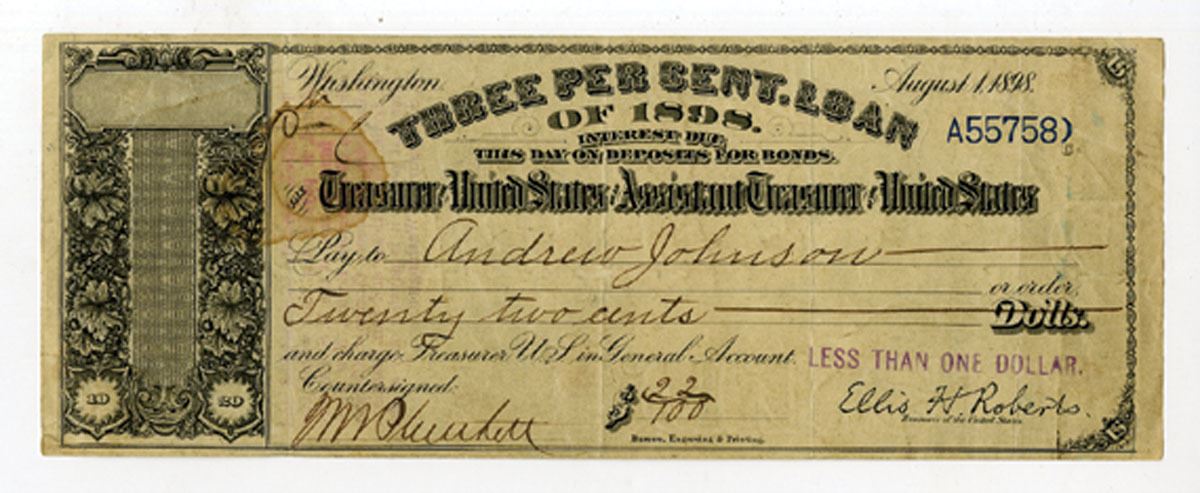 Washington. August 1, 1898.
THREE PER CENT. LOAN
OF 1898.
A55758)
INTEREST DUE
THIS DAY ON DEPOSITS FOR BONDS.
Treasurer of the United States or Assistant Treasurer of the United States
Pay to Andrew Johnson
or order,
Twenty two cents Dolls.
and charge Treasurer U S in General Account. LESS THAN ONE DOLLAR.
Countersigned:
$ 22/100
Ellis H Roberts.
Treasurer of the United States.
Bureau, Engraving & Printing.
10 20